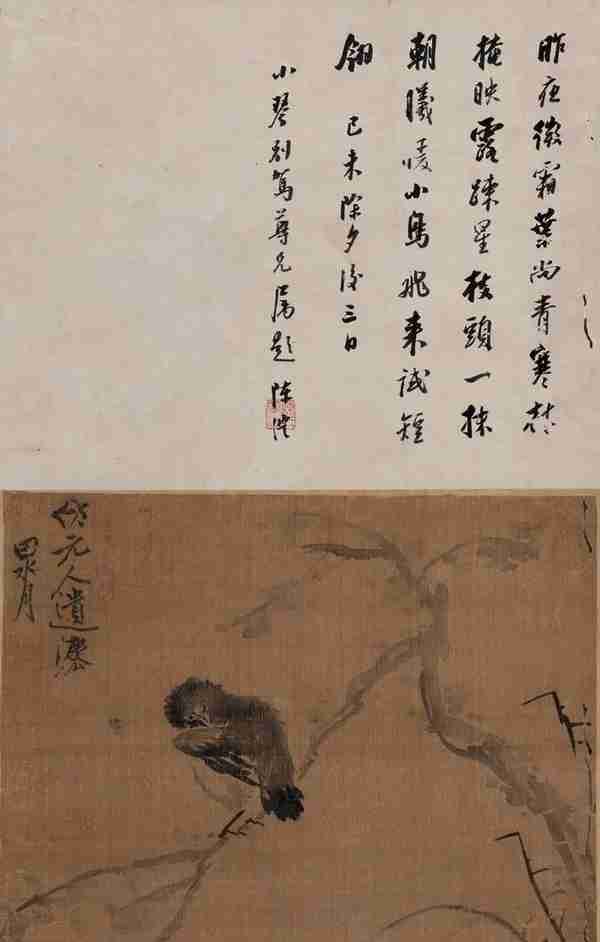 昨夜微霜葉尚青寒
掩映露疎星枝頭一抹
朝曦暖小鳥飛來試短
翎 己未除夕後三日
小琴別駕尊兄屬題 陳澧
仿元人遺
田水月